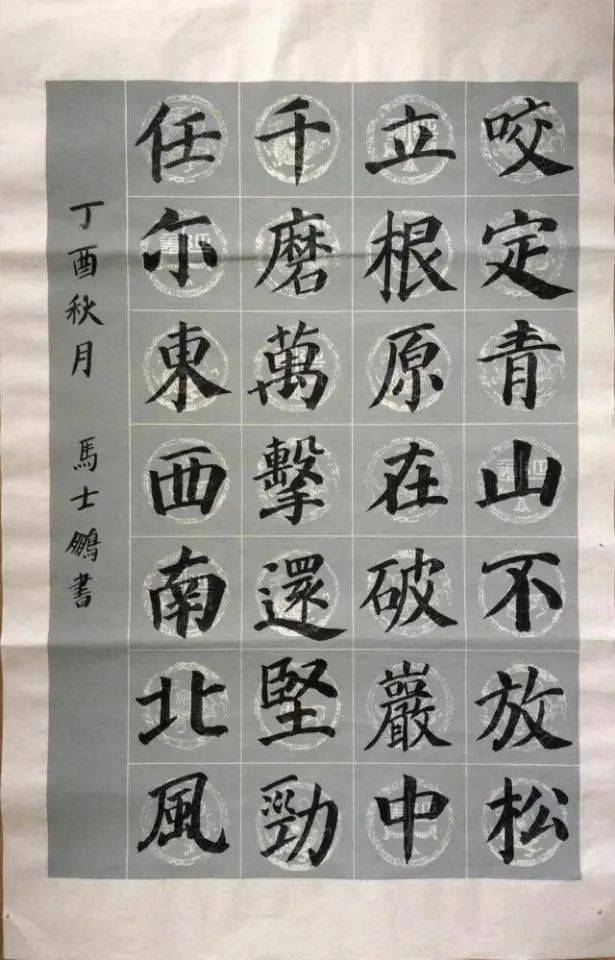 咬定青山不放松
立根原在破巖中
千磨萬擊還堅勁
任尔東西南北風
丁酉秋月 馬士鵬書